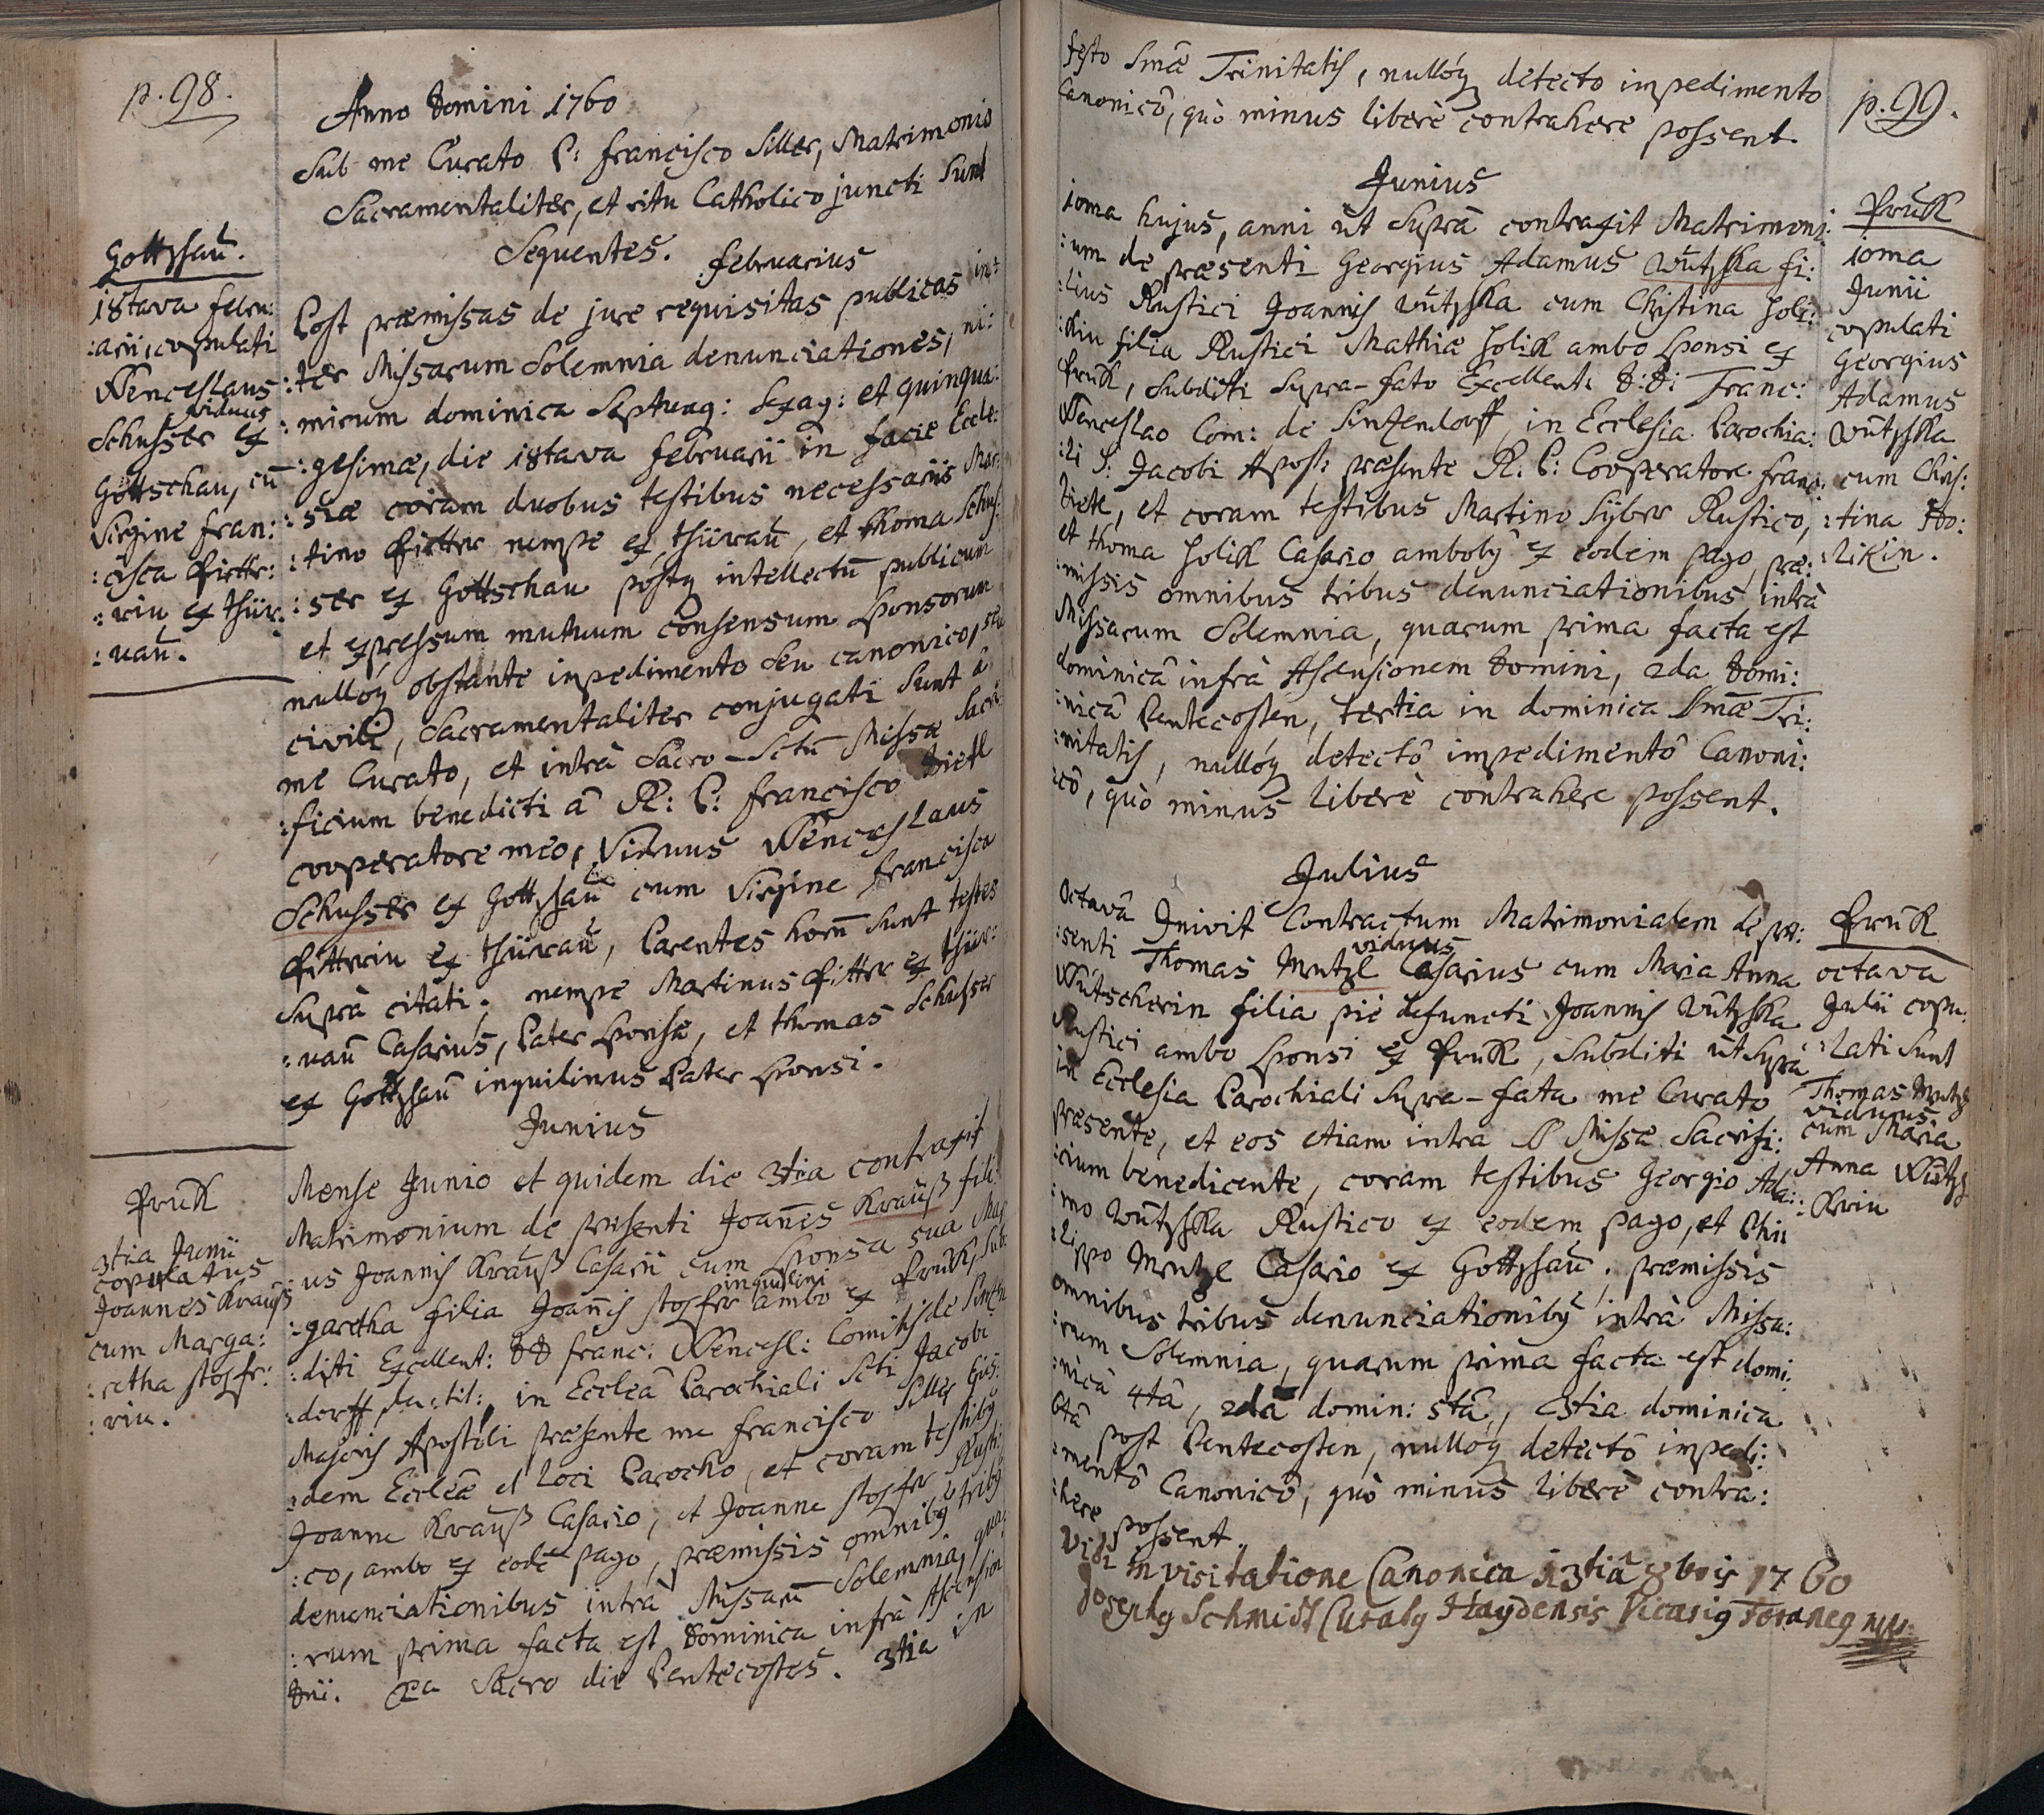 p. 98.
Anno Domini 1760
Sub me Curato P: Francisco Siller, Matrimonio
Sacramentaliter, et ritu Catholico juncti Sunt
Sequentes. Februarius
Gottschaū.
18tava Febru:
:arii, copulati
Wenceslaus
viduus
Schusser ex
Gottschau, cū
Virgine Fran:
:cisca
:rin ex thür:
:naū.
Post præmissas de jure requisitas publicas in:
:ter Missarum Solemnia denunciationes, ni:
:mirum dominica Septuag: Sexag: et quinqua:
:gesimæ, die 18tava Februarii in facie Eccle:
:siæ coram duobus testibus necessariis Mar:
:tino nempe ex thürnaū, et Thoma Schus:
:ser ex Gottschau postq intellectū publicum
et expressum mutuum consensum Sponsorum
nullóq obstante impedimento seu canonico, seu
civili, Sacramentaliter conjugati Sunt â
me Curato, et intrà Sacro-Sctū Missæ Sacri
:ficium benedicti â R: P: Francisco Dietl
cooperatore meo, Viduus Wenceslaus
Schusser ex Gottschaū cum Virgine Francisca
ex thürnaū, Parentes horū Sunt testes
Suprà citati; nempe Martinus ex thür:
:naū Casarius, Pater Sponsæ, et thomas Schusser
ex Gottschaū inquilinus Pater Sponsi.
Junius
Pruk
3tia Junii
copulatus
Joannes Krauß
cum Marga:
:retha
:rin.
Mense Junio et quidem die 3tia contraxit
Matrimonium de præsenti Joañes Krauß fili:
:us Joannis Krauß Casarii cum Sponsa sua Mar
inquilini
:garetha filia Joañis ambo ex Pruk, Sub:
:diti Excellent: DD Franc: Wencesl: Comitis de Sintzen
:dorff, in Ecclæâ Parochiali Scti Jacobi
Majoris Apostoli præsente me Francisco Siller Ejus:
:dem Eccleæ et loci Parocho, et coram testiby
Joanne Krauß Casario, et Joanne Rusti:
:co, ambo ex eodē pago, præmissis omniby triby
denunciationibus intrà Missarū Solemnia, qua
:rum prima facta est Dominica infrà Ascension
Dñi. 2a Sacro die Pentecostes. 3tia in
festo Smæ Trinitatis, nullóq detecto impedimento
Canonicô, quò minus liberè contrahere possent.
p. 99.
Junius
10ma hujus, anni ut Suprà contraxit Matrimoni:
:um de præsenti Georgius Adamus Wūtzka fi:
:lius Rustici Joannis Wūtzka cum Christina Holi:
:kin filia Rustici Mathiæ Holik ambo Sponsi ex
Pruk, Subditi Supra-fato Excellenti D:Di Franc:
Wenceslao Com: de Sintzendorff, in Ecclesia Parochia:
:li S: Jacobi Apost: præsente R: P: Cooperatore Franc:
Dietl, et coram testibus Martino Süber Rustico,
et thoma Holik Casario amboby ex eodem pago, præ:
:missis omnibus tribus denunciationibus intrà
Missarum Solemnia, quarum prima facta est
dominicâ infrà Ascensionem Domini, 2da Domi:
:nicâ Pentecosten, tertia in dominica Smæ Tri:
:nitatis, nullóq detectô impedimentô Canoni:
:cô, quò minus liberè contrahere possent.
Pruk
10ma
Junii
copulati
Georgius
Adamus
Wūtzka
cum Chris:
:tina Ho:
:likin.
Julius
Octavâ Inivit Contractum Matrimonialem de præ:
:senti Thomas Mutzl viduus Casarius cum Maria Anna
Wūtscherin filia piè defuncti Joannis Wūtzka
Rustici ambo Sponsi ex Pruk, Subditi ut Supra
in Ecclesia Parochiali Supra-fata me Curato
præsente, et eos etiam intra Missæ Sacrifi:
:cium benedicente, coram testibus Georgio Ada:
:mo Wūtzka Rustico ex eodem pago, et Phi
:lippo Mutzl Casario ex Gottschaū, præmissis
omnibus tribus denunciationiby intrà Missa:
:rum Solemnia, quarum prima facta est domi:
:nicâ 4tâ, 2da domin: 5tâ, 3tia dominica
6tâ post Pentecosten, nullóq detectô impedi:
:mentô Canonicô, quò minus liberè contra:
:here possent.
Pruk
octava
Julii copu:
:lati Sunt
Thomas Mutzl
viduus
cum Maria
Anna Wūtz
:krin
Vidi in visitatione Canonica 13tiâ 8bris 1760
Josephy Schmidt Curaty Haydensis Vicariy Foraney mpr.